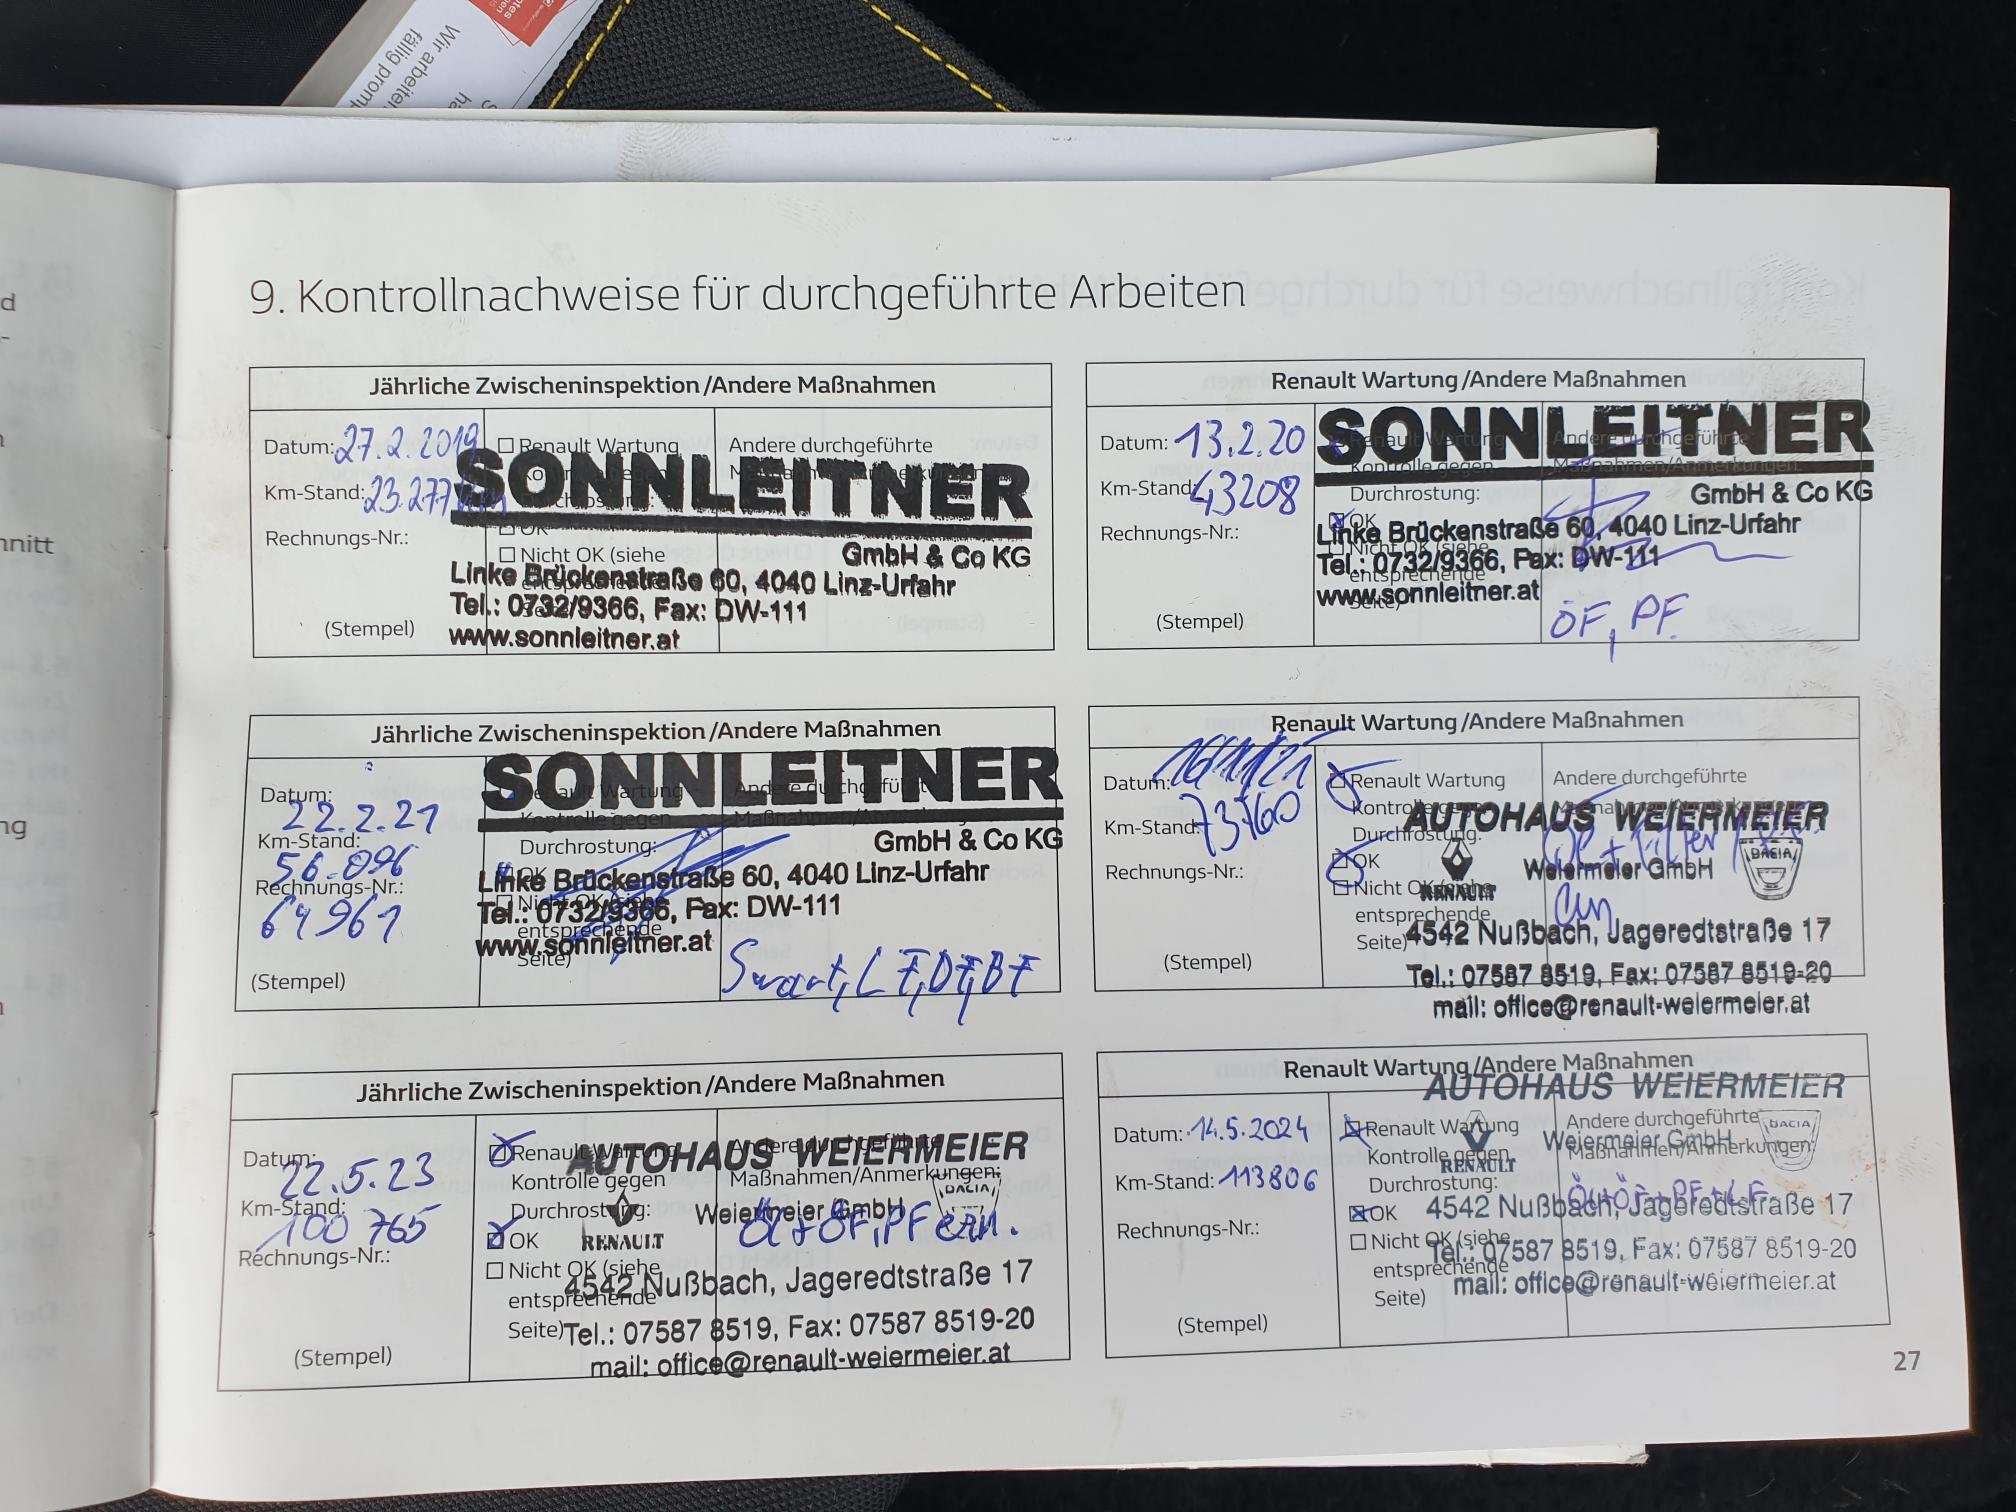 Wir arbeiten
fällig promp
9. Kontrollnachweise für durchgeführte Arbeiten
Jährliche Zwischeninspektion/Andere Maßnahmen
Datum: 27.2.2019
Renault Wartung
Andere durchgeführte
Km-Stand: 23.277
Rechnungs-Nr.:
OK
Nicht OK (siehe
entsprechende
Seite)
(Stempel)
SONNLEITNER
GmbH & Co KG
Linke Brückenstraße 60, 4040 Linz-Urfahr
Tel.: 0732/9366, Fax: DW-111
www.sonnleitner.at
Renault Wartung/Andere Maßnahmen
Datum: 13.2.20
Renault Wartung
Andere durchgeführte
Kontrolle gegen
Maßnahmen/Anmerkungen:
Km-Stand: 43208
Durchrostung:
Rechnungs-Nr.:
OK
Nicht OK (siehe
entsprechende
Seite)
(Stempel)
SONNLEITNER
GmbH & Co KG
Linke Brückenstraße 60, 4040 Linz-Urfahr
Tel.: 0732/9366, Fax: DW-111
www.sonnleitner.at
ÖF, PF
Jährliche Zwischeninspektion/Andere Maßnahmen
Datum: 22.2.21
Renault Wartung
Andere durchgeführte
Kontrolle gegen
Km-Stand: 56.096
Durchrostung:
Rechnungs-Nr.: 64961
OK
Nicht OK (siehe
entsprechende
Seite)
(Stempel)
SONNLEITNER
GmbH & Co KG
Linke Brückenstraße 60, 4040 Linz-Urfahr
Tel.: 0732/9366, Fax: DW-111
www.sonnleitner.at
LF, DF, BF
Renault Wartung/Andere Maßnahmen
Datum:
Renault Wartung
Andere durchgeführte
Kontrolle gegen
Km-Stand: 73760
Durchrostung:
Rechnungs-Nr.:
OK
Nicht OK (siehe
entsprechende
Seite)
(Stempel)
AUTOHAUS WEIERMEIER
Weiermeier GmbH
RENAULT
DACIA
4542 Nußbach, Jageredtstraße 17
Tel.: 07587 8519, Fax: 07587 8519-20
mail: office@renault-weiermeier.at
Jährliche Zwischeninspektion/Andere Maßnahmen
Datum: 22.5.23
Renault Wartung
Andere durchgeführte
Kontrolle gegen
Maßnahmen/Anmerkungen:
Km-Stand: 100 765
Durchrostung:
Rechnungs-Nr.:
OK
Nicht OK (siehe
entsprechende
Seite)
(Stempel)
AUTOHAUS WEIERMEIER
Weiermeier GmbH
RENAULT
DACIA
4542 Nußbach, Jageredtstraße 17
Tel.: 07587 8519, Fax: 07587 8519-20
mail: office@renault-weiermeier.at
Renault Wartung/Andere Maßnahmen
Datum: 14.5.2024
Renault Wartung
Andere durchgeführte
Kontrolle gegen
Maßnahmen/Anmerkungen:
Km-Stand: 113806
Durchrostung:
Rechnungs-Nr.:
OK
Nicht OK (siehe
entsprechende
Seite)
(Stempel)
AUTOHAUS WEIERMEIER
Weiermeier GmbH
RENAULT
DACIA
4542 Nußbach, Jageredtstraße 17
Tel.: 07587 8519, Fax: 07587 8519-20
mail: office@renault-weiermeier.at
27